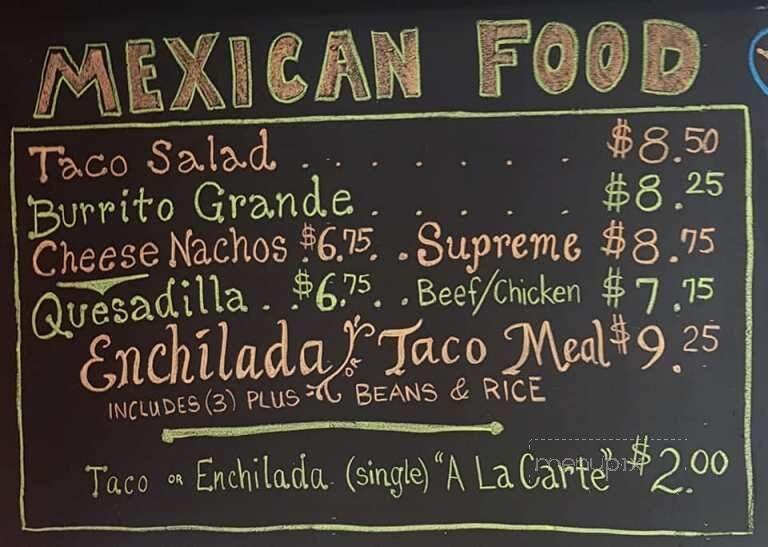 MEXICAN FOOD
Taco Salad . . . . . . . $8.50
Burrito Grande . . . . . . $8.25
Cheese Nachos $6.75 . . Supreme $8.75
Quesadilla . $6.75 . . Beef/Chicken $7.75
Enchilada OR Taco Meal $9.25
INCLUDES (3) PLUS BEANS & RICE
Taco OR Enchilada (single) "A La Carte" $2.00
menupix